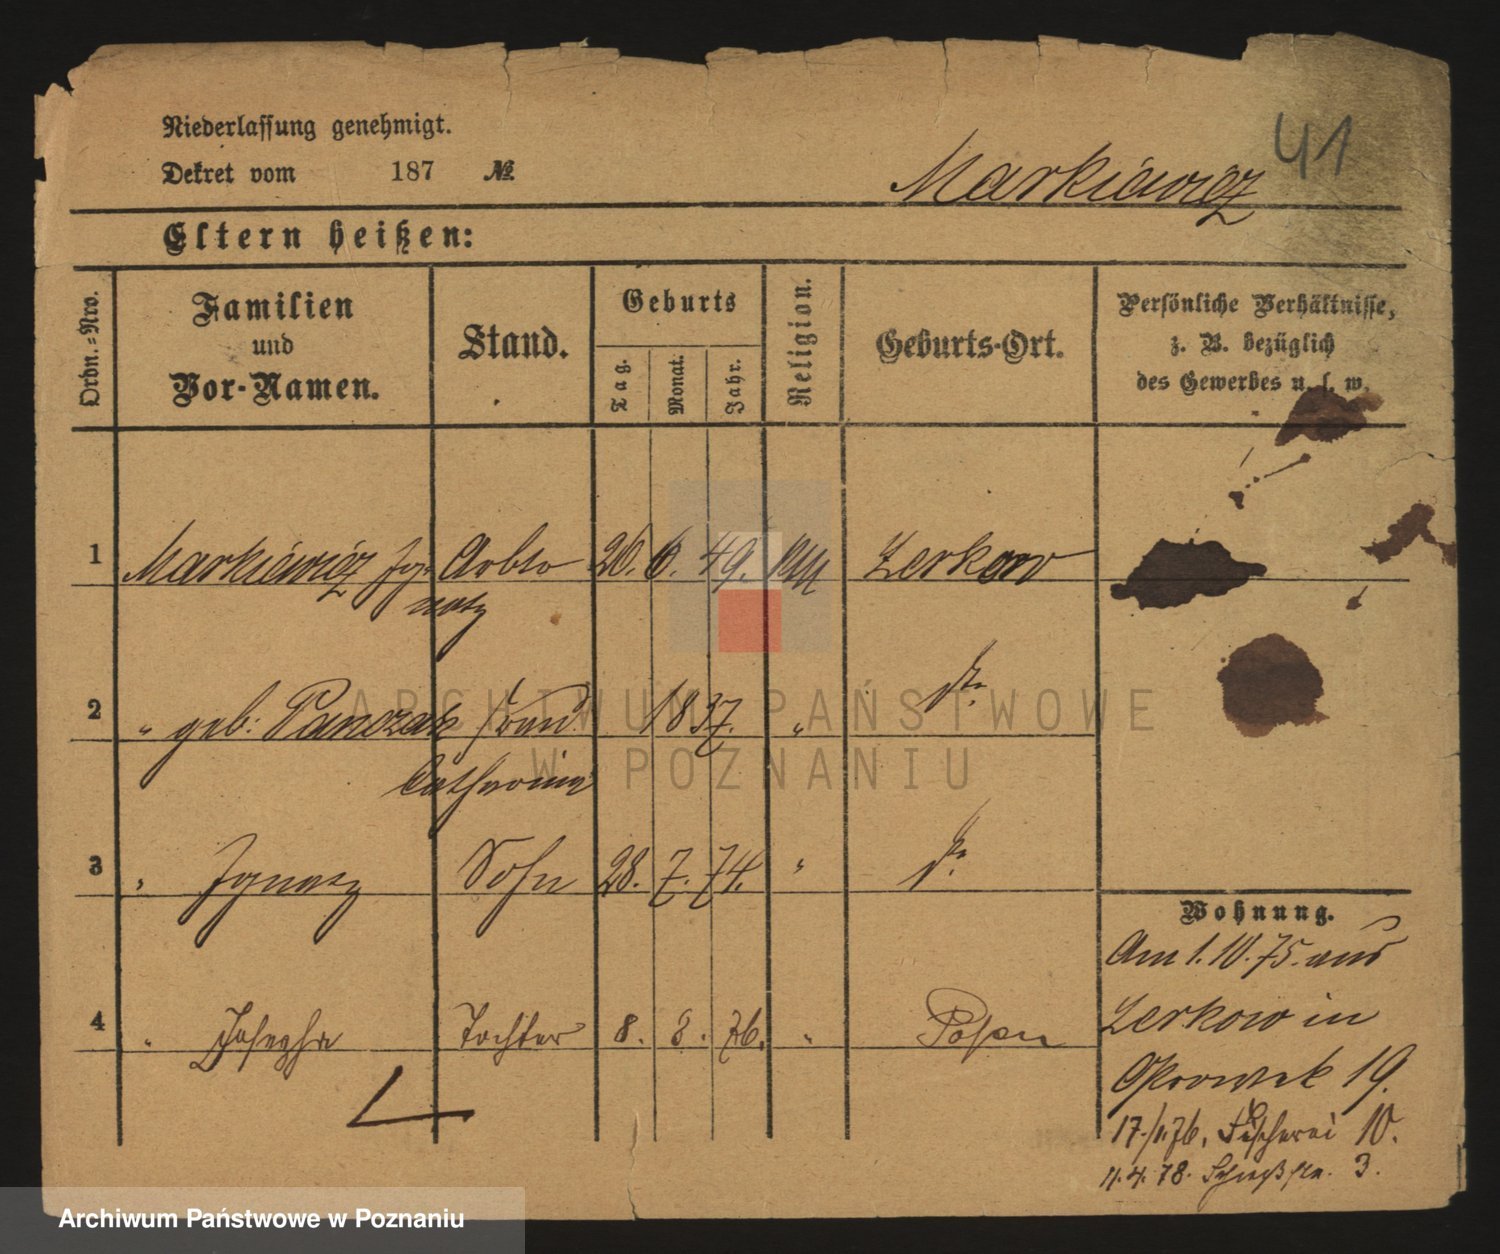 41
Niederlassung genehmigt.
Dekret vom 187 №
Markiewicz
Eltern heißen:
Ordn.-Nro.
Familien und Vor-Namen.
Stand.
Geburts
Tag.
Monat.
Jahr.
Religion.
Geburts-Ort.
Persönliche Verhältnisse,
z. B. bezüglich
des Gewerbes u. s. w.
1 Markiewicz Ig- Arbtr 26. 6. 49. Zerkow
natz
2 " geb: Panczak Frau 1837. "
Catharina
3 " Ignatz Sohn 28. 7. 74. "
4 " Josepha Tochter 8. 3. 76. " Posen
Wohnung.
Am 1. 10. 75. aus
Zerkow in
19.
Fischerei 10.
11. 4. 78. Schießstr. 3.
ARCHIWUM PAŃSTWOWE
W POZNANIU
Archiwum Państwowe w Poznaniu